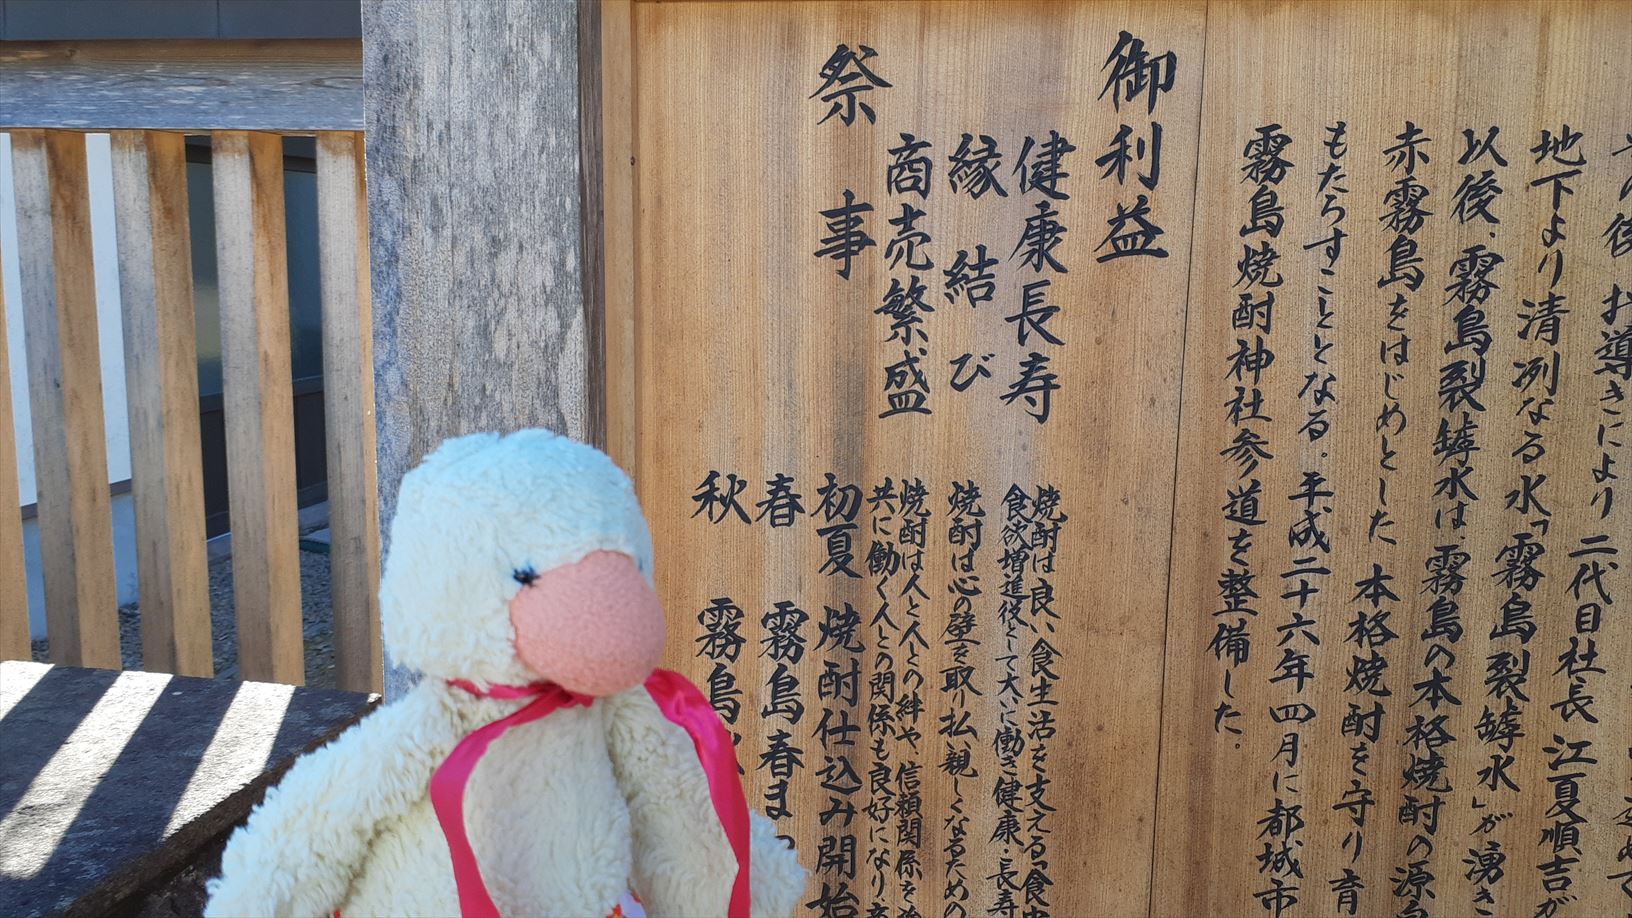 後お導きにより二代目社長江夏順吉が
地下より清冽なる水「霧島裂罅水」が湧き
以後、霧島裂罅水は、霧島の本格焼酎の源
赤霧島をはじめとした本格焼酎を守り育
もたらすこととなる。平成二十六年四月に都城市
霧島焼酎神社参道を整備した。
御利益
健康長寿
焼酎は良い食生活を支える「食中
食欲増進役として大いに働き健康、長寿
縁結び
焼酎は心の壁を取り払、親しくなるための
商売繁盛
焼酎は人と人との絆や、信頼関係を
共に働く人との関係も良好になり商
祭事
初夏 焼酎仕込み開始
春 霧島春ま
秋 霧島